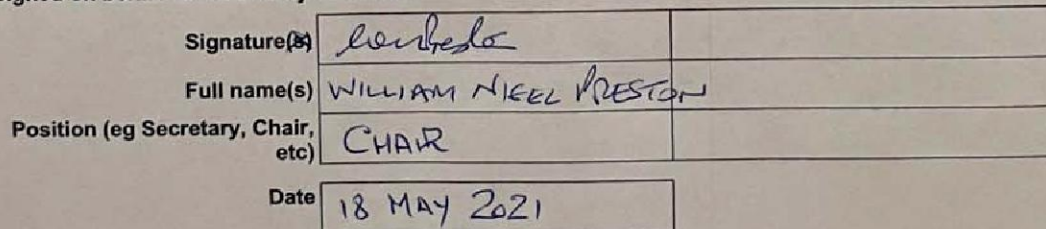 Signature(s)
Full name(s) WILLIAM NIGEL PRESTON
Position (eg Secretary, Chair, etc) CHAIR
Date 18 MAY 2021